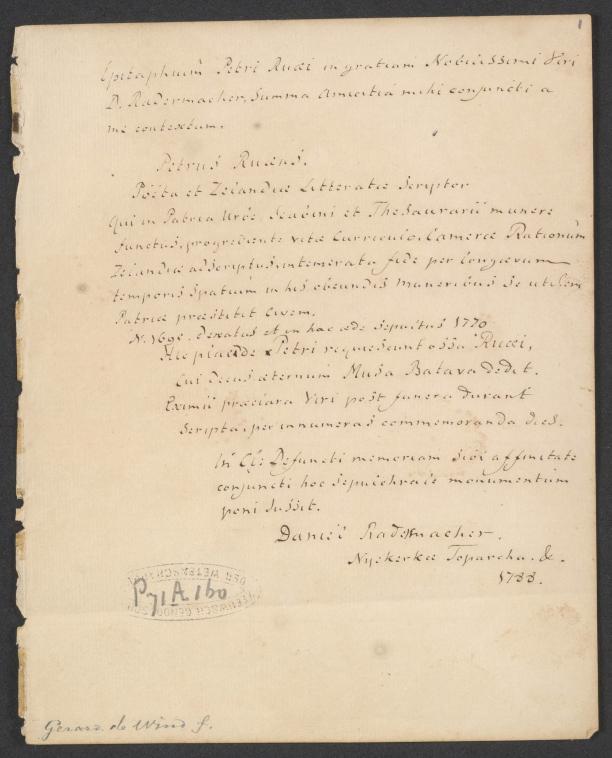 1
Epitaphium Petri Ruaei in gratiam Nobilissimi Viri
D. Radermacher, Summa Amicitiâ mihi conjuncti a
me contextum.
Petrus Ruaeus.
Poëta et Zelandiae Litteratae Scriptor
qui in Patria Urbe, Scabini et Thesaurarii munere
functus, progrediente vitae Curriculo, Camerae Rationum
Zelandiae adscriptus, intemerata fide per longaevum
temporis spatium in his obeundis muneribus se utilem
Patriae praestitit Civem.
N. 1690. denatus et in hac aede sepultus 1770
Hic placide Petri requiescunt ossa Ruaei,
Cui decus aeternum Musa Batava dedit.
Eximii praeclara Viri post funera durant
Scripta, per innumeras commemoranda dies.
In Cl: Defuncti memoriam sibi affinitate
conjuncti hoc sepulchrale monumentum
poni Jussit.
Daniel Radermacher.
Nyekerkae Toparcha. &.
1788.
P 71 A 160
Gerard de Wind f.